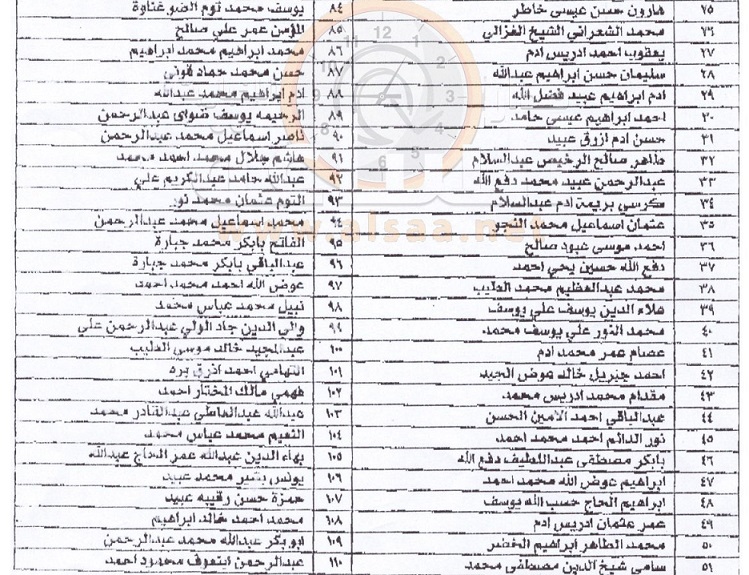 ٢٥ هارون حسن عيسى خاطر
٨٤ يوسف محمد توم الضو غناوة
٢٦ محمد الشعراني الشيخ الغزالي
٨٥ المؤمن عمر علي صالح
٢٧ يعقوب احمد ادريس ادم
٨٦ محمد ابراهيم محمد ابراهيم
٢٨ سليمان حسن ابراهيم عبدالله
٨٧ حسن محمد حماد
٢٩ ادم ابراهيم عبيد فضل الله
٨٨ ادم ابراهيم محمد عبدالله
٣٠ احمد ابراهيم عيسى حامد
٨٩ الرحيمه يوسف ضواي عبدالرحمن
٣١ حسن ادم ازرق عبيد
٩٠ ناصر اسماعيل محمد عبدالرحمن
٣٢ طاهر صالح الرخيص عبدالسلام
٩١ هاشم جلال محمد احمد محمد
٣٣ عبدالرحمن عبيد محمد دفع الله
٩٢ عبدالله حامد عبدالكريم علي
٣٤ مكرسي بريمة ادم عبدالسلام
٩٣ التوم عثمان محمد نور
٣٥ عثمان اسماعيل محمد النجو
٩٤ محمد اسماعيل محمد عبدالرحمن
٣٦ احمد موسى عبود صالح
٩٥ الفاتح بابكر محمد جبارة
٣٧ دفع الله حسين يحي احمد
٩٦ عبدالباقي بابكر محمد جبارة
٣٨ محمد عبدالعظيم محمد الطيب
٩٧ عوض الله احمد محمد احمد
٣٩ علاء الدين يوسف علي يوسف
٩٨ نبيل محمد عباس محمد
٤٠ محمد النور علي يوسف محمد
٩٩ والي الدين جاد الولي عبدالرحمن علي
٤١ عصام عمر محمد ادم
١٠٠ عبدالمجيد خالد موسى الطيب
٤٢ احمد جبريل خالد عوض الجيد
١٠١ التهامي احمد ازرق بره
٤٣ مقدام محمد ادريس محمد
١٠٢ فهمي مالك المختار احمد
٤٤ عبدالباقي احمد الامين الحسن
١٠٣ عبدالله عبدالعاطي عبدالقادر محمد
٤٥ نور الدائم احمد محمد احمد
١٠٤ النعيم محمد عباس محمد
٤٦ بابكر مصطفى عبداللطيف دفع الله
١٠٥ بهاء الدين عبدالله عمر الحاج عبدالله
٤٧ ابراهيم عوض الله محمد احمد
١٠٦ يونس بشير محمد عبيد
٤٨ ابراهيم الحاج حسب الله يوسف
١٠٧ حمزة حسن رقيبه عبيد
٤٩ عمر عثمان ادريس ادم
١٠٨ محمد احمد خالد ابراهيم
٥٠ محمد الطاهر ابراهيم الخضر
١٠٩ ابوبكر عبدالله محمد عبدالرحمن
٥١ سامي شيخ الدين مصطفى محمد
١١٠ عبدالرحمن ابنعوف محمود احمد
www.alsaa.net